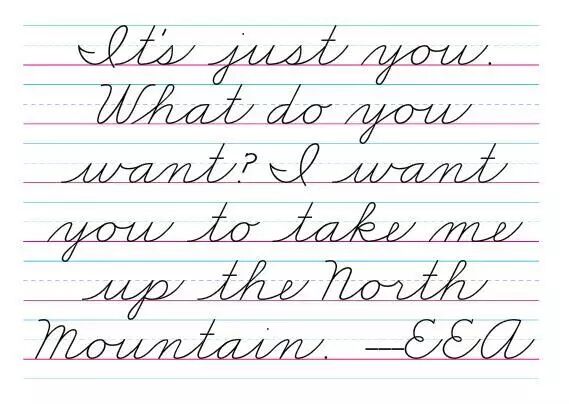 It's just you.
What do you
want? I want
you to take me
up the North
Mountain. —EEA